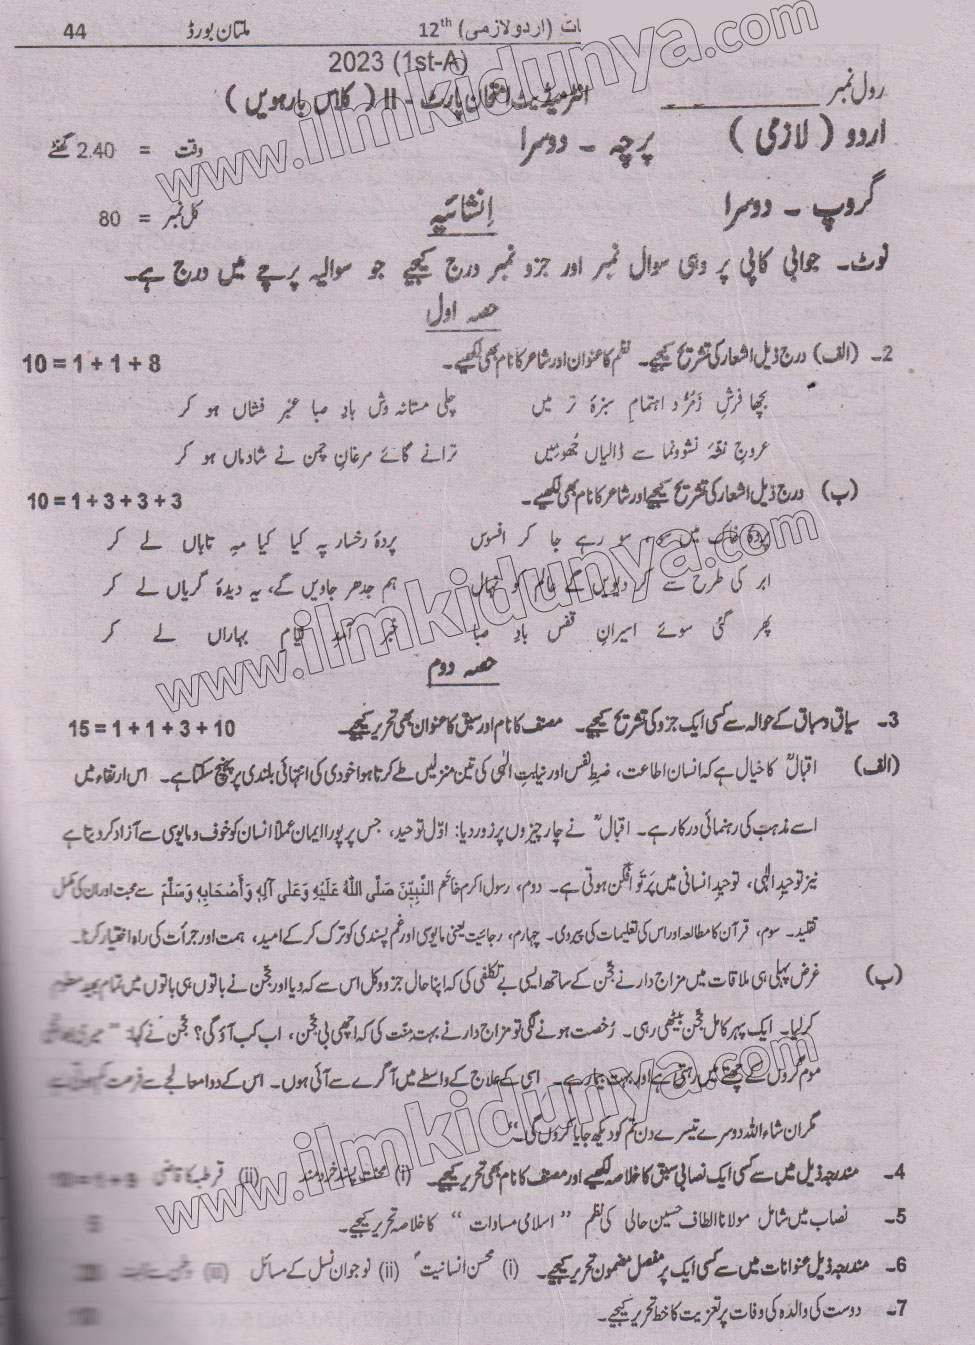 44 ملتان بورڈ 12th (اردو لازمی)
2023 (1st-A)
رول نمبر ____________ انٹرمیڈیٹ امتحان پارٹ - II ( کلاس بارھویں )
اردو ( لازمی ) پرچہ - دوسرا وقت = 2.40 گھنٹے
گروپ - دوسرا اِنشائیہ کل نمبر = 80
نوٹ۔ جوابی کاپی پر وہی سوال نمبر اور جزو نمبر درج کیجیے جو سوالیہ پرچے میں درج ہے۔
حصہ اول
2۔ (الف) درج ذیل اشعار کی تشریح کیجیے۔ نظم کا عنوان اور شاعر کا نام بھی لکھیے۔ 10 = 1 + 1 + 8
بچھا فرشِ زَمرُّد اہتمامِ سبزۂ تر میں چلی مستانہ وش بادِ صبا عنبر فشاں ہو کر
عروجِ نشۂ نشوونما سے ڈالیاں جُھومیں ترانے گائے مرغانِ چمن نے شادماں ہو کر
(ب) درج ذیل اشعار کی تشریح کیجیے اور شاعر کا نام بھی لکھیے۔ 10 = 1 + 3 + 3 + 3
پردۂ خاک میں سو، سو رہے جا کر افسوس پردۂ رخسار پہ کیا کیا مہِ تاباں لے کر
ابر کی طرح سے کر دیویں گے عالم کو نہال ہم جدھر جاویں گے، یہ دیدۂ گریاں لے کر
پھر گئی سوئے اسیرانِ قفس بادِ صبا خبر آمدِ ایام بہاراں لے کر
حصہ دوم
3۔ سیاق و سباق کے حوالہ سے کسی ایک جزو کی تشریح کیجیے۔ مصنف کا نام اور سبق کا عنوان بھی تحریر کیجیے۔ 15 = 1 + 1 + 3 + 10
(الف) اقبالؒ کا خیال ہے کہ انسان اطاعت، ضبطِ نفس اور نیابتِ الٰہی کی تین منزلیں طے کرتا ہوا خودی کی انتہائی بلندی پر پہنچ سکتا ہے۔ اس ارتقاء میں
اسے مذہب کی رہنمائی درکار ہے۔ اقبالؒ نے چار چیزوں پر زور دیا: اوّل توحید، جس پر پورا ایمان عملاً انسان کو خوف و مایوسی سے آزاد کر دیتا ہے
نیز توحیدِ الٰہی، توحیدِ انسانی میں پَرتَو افگن ہوتی ہے۔ دوم، رسول اکرم خاتم النَّبِیّٖنَ صَلَّی اللّٰہُ عَلَیْہِ وَعَلٰی آلِہٖ وَاَصْحَابِہٖ وَسَلَّمَ سے محبت اور ان کی مکمل
تقلید۔ سوم، قرآن کا مطالعہ اور اس کی تعلیمات کی پیروی۔ چہارم، رجائیت یعنی مایوسی اور غم پسندی کو ترک کر کے امید، ہمت اور جرأت کی راہ اختیار کرنا۔
(ب) غرض پہلی ہی ملاقات میں مزاج دار نے حجن کے ساتھ ایسی بے تکلفی کی کہ اپنا حال جز و کل اس سے کہہ دیا اور حجن نے باتوں ہی باتوں میں تمام بھید معلوم
کر لیا۔ ایک پہر کامل حجن بیٹھی رہی۔ رُخصت ہونے لگی تو مزاج دار نے بہت منّت کی کہ اچھی بی حجن، اب کب آؤ گی؟ حجن نے کہا: "میری بھانجی
موم گروں کے چھتے میں رہتی ہے اور بہت بیمار ہے۔ اسی کے علاج کے واسطے میں آگرے سے آئی ہوں۔ اس کے دوا معالجے سے فرصت کم ہوتی ہے
مگر ان شاء اللہ دوسرے تیسرے دن تم کو دیکھ جایا کروں گی۔"
4۔ مندرجہ ذیل میں سے کسی ایک نصابی سبق کا خلاصہ لکھیے اور مصنف کا نام بھی تحریر کیجیے۔ (i) محنت پسند خردمند (ii) قرطبہ کا قاضی 10 = 1 + 9
5۔ نصاب میں شامل مولانا الطاف حسین حالی کی نظم " اسلامی مساوات " کا خلاصہ تحریر کیجیے۔ 5
6۔ مندرجہ ذیل عنوانات میں سے کسی ایک پر مفصل مضمون تحریر کیجیے۔ (i) محسن انسانیتؐ (ii) نوجوان نسل کے مسائل (iii)
7۔ دوست کی والدہ کی وفات پر تعزیت کا خط تحریر کیجیے۔ 10
www.ilmkidunya.com
www.ilmkidunya.com
www.ilmkidunya.com